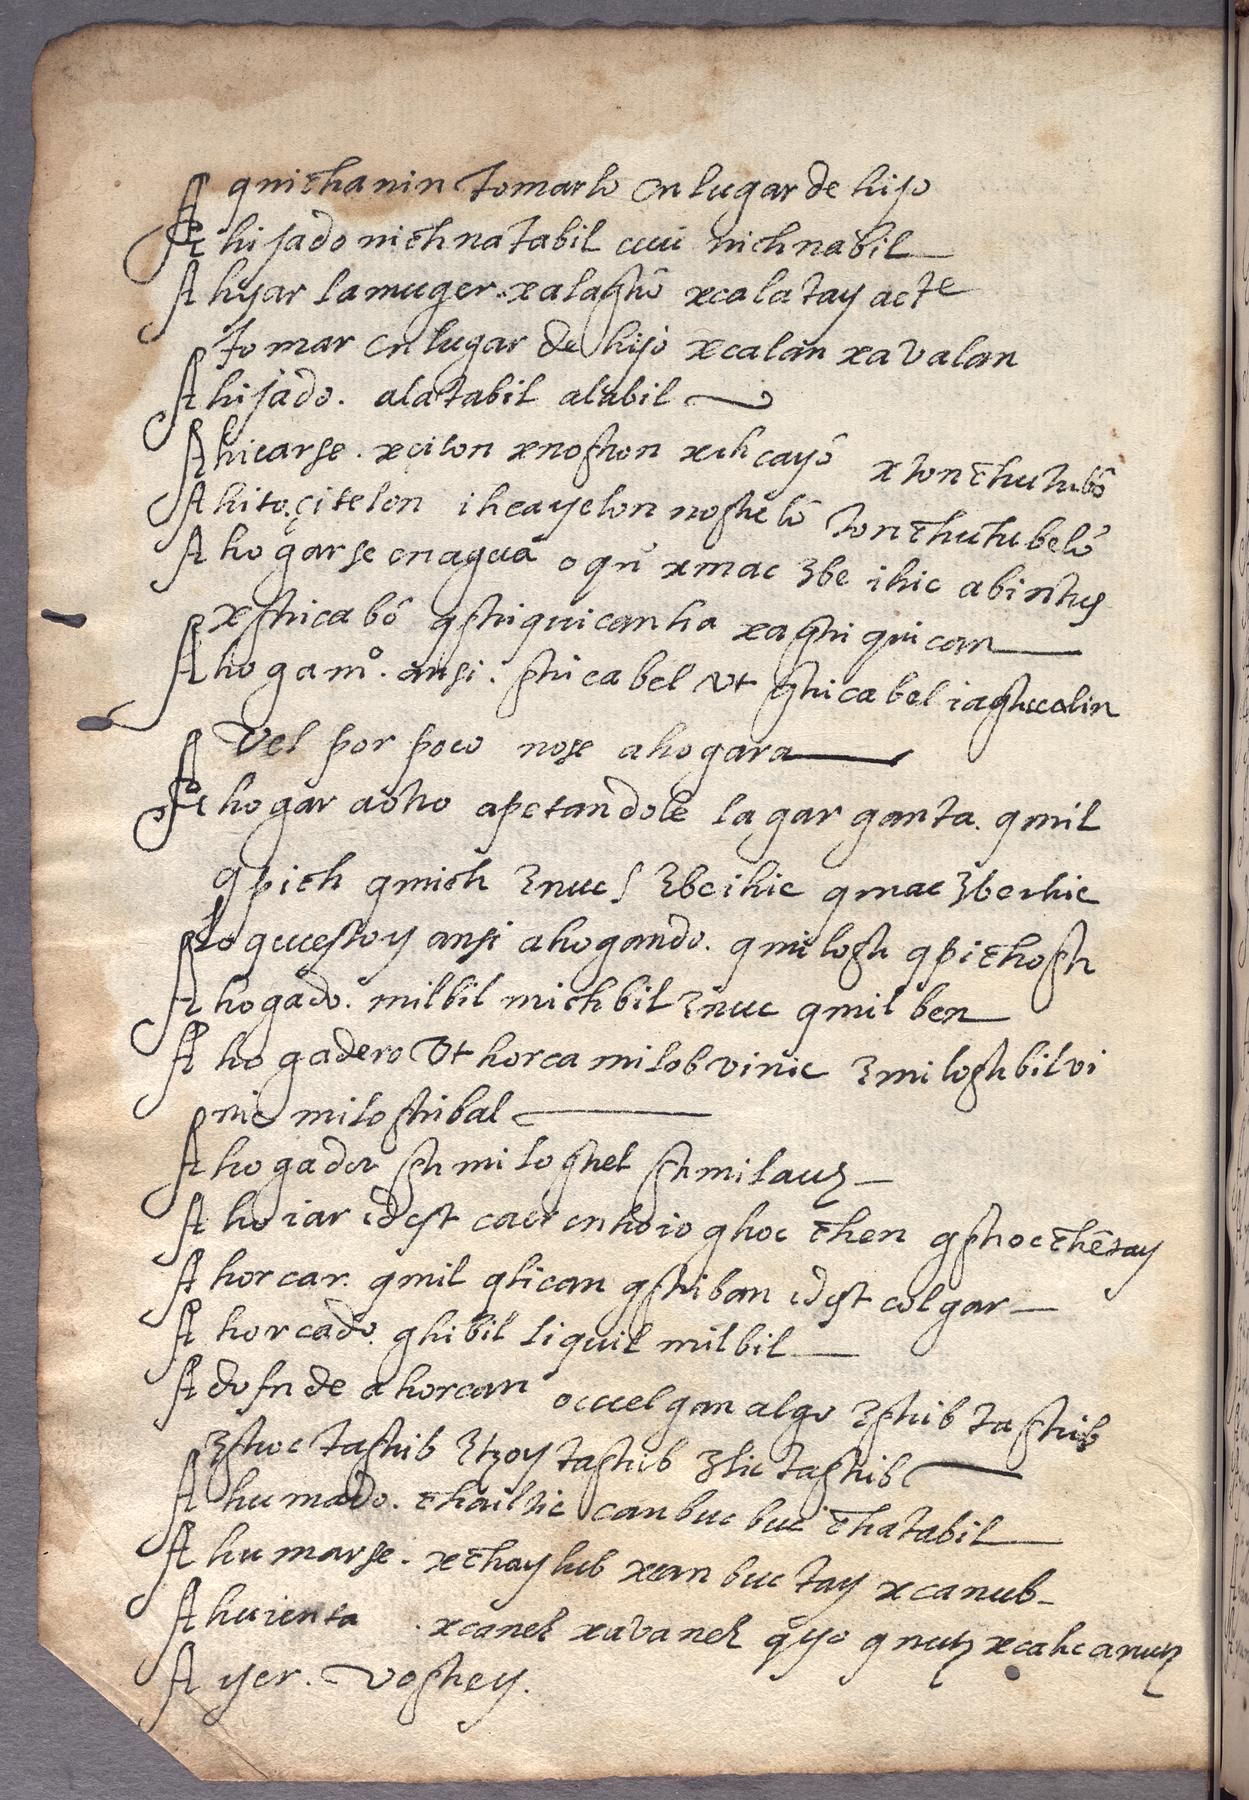 qnichanin tomarlo en lugar de hijo
Ahijado nichnatabil cuu nichnabil
Ahijar la muger. xalaghō xcalatay acte
tomar en lugar de hijo xcalan xavalan
Ahijado. alatabil alabil
Ahitarse. xçiton xnoghon xihcayō xtonchutubō
Ahito. çitelon iheayelon noghelō tonchutubelō
Ahogarse en agua o qñ xmac ʒbe ihic abintus
xghicabō qghiquicanha xaghiquican
Ahogamº. ansi. ghicabel vt ghicabel
Vel por poco nose ahogara
Ahogar aotro apetandole la garganta. qmil
qpich qmich ʒnuc ʒbe ihic qmac ʒbe ihic
lo questoy ansi ahogando. qmilogh qpichogh
Ahogado. milbil michbil ʒnuc qmilben
Ahogadero vt horca milobvinic ʒmiloghbilvi
nic miloghibal
Ahogador ghmiloghel ghmilauʒ
Ahoiar idest caer en hoio ghoc chen qghoc chētay
Ahorcar. qmil qlican qghiban idest colgar
Ahorcado. ghibil liquil milbil
Adonde ahorcan o cuelgan algo ʒghib taghib
ʒghoc taghib ʒtzoy taghib ʒlic taghib
Ahumado. chailtic canbuc buc chatabil
Ahumarse. xchayhub xcanbuctay xcanub
Ahuienta xcanel xavanel
Ayer. voghey.